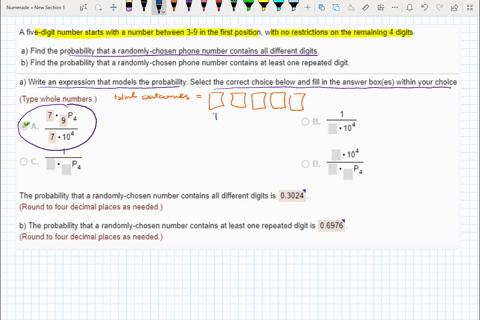 Numerade » New Section 1
A five-digit number starts with a number between 3-9 in the first position, with no restrictions on the remaining 4 digits.
a) Find the probability that a randomly-chosen phone number contains all different digits.
b) Find the probability that a randomly-chosen phone number contains at least one repeated digit.
a) Write an expression that models the probability. Select the correct choice below and fill in the answer box(es) within your choice
(Type whole numbers.) total outcomes =
A. 7 • 9 P 4 / 7 • 10^4
B. 1 / • 10^4
C. 1 / • P 4
D. • 10^4 / • P 4
The probability that a randomly-chosen number contains all different digits is 0.3024.
(Round to four decimal places as needed.)
b) The probability that a randomly-chosen number contains at least one repeated digit is 0.6976.
(Round to four decimal places as needed.)